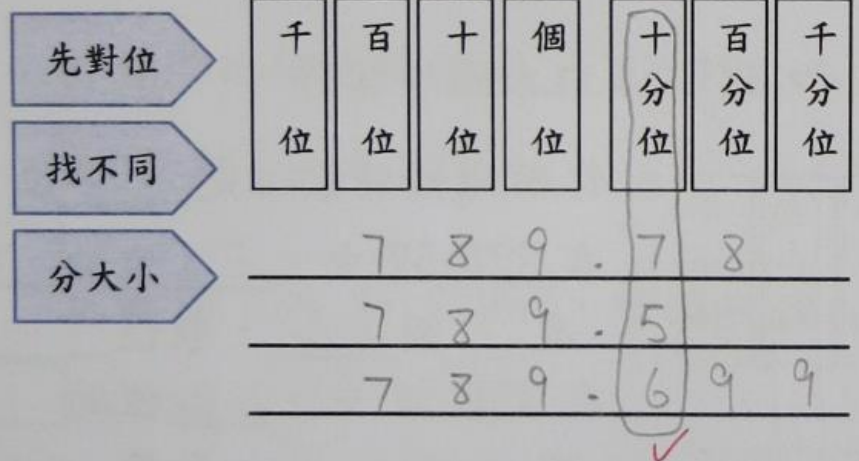 先對位
找不同
分大小
千位
百位
十位
個位
十分位
百分位
千分位
789.78
789.5
789.699